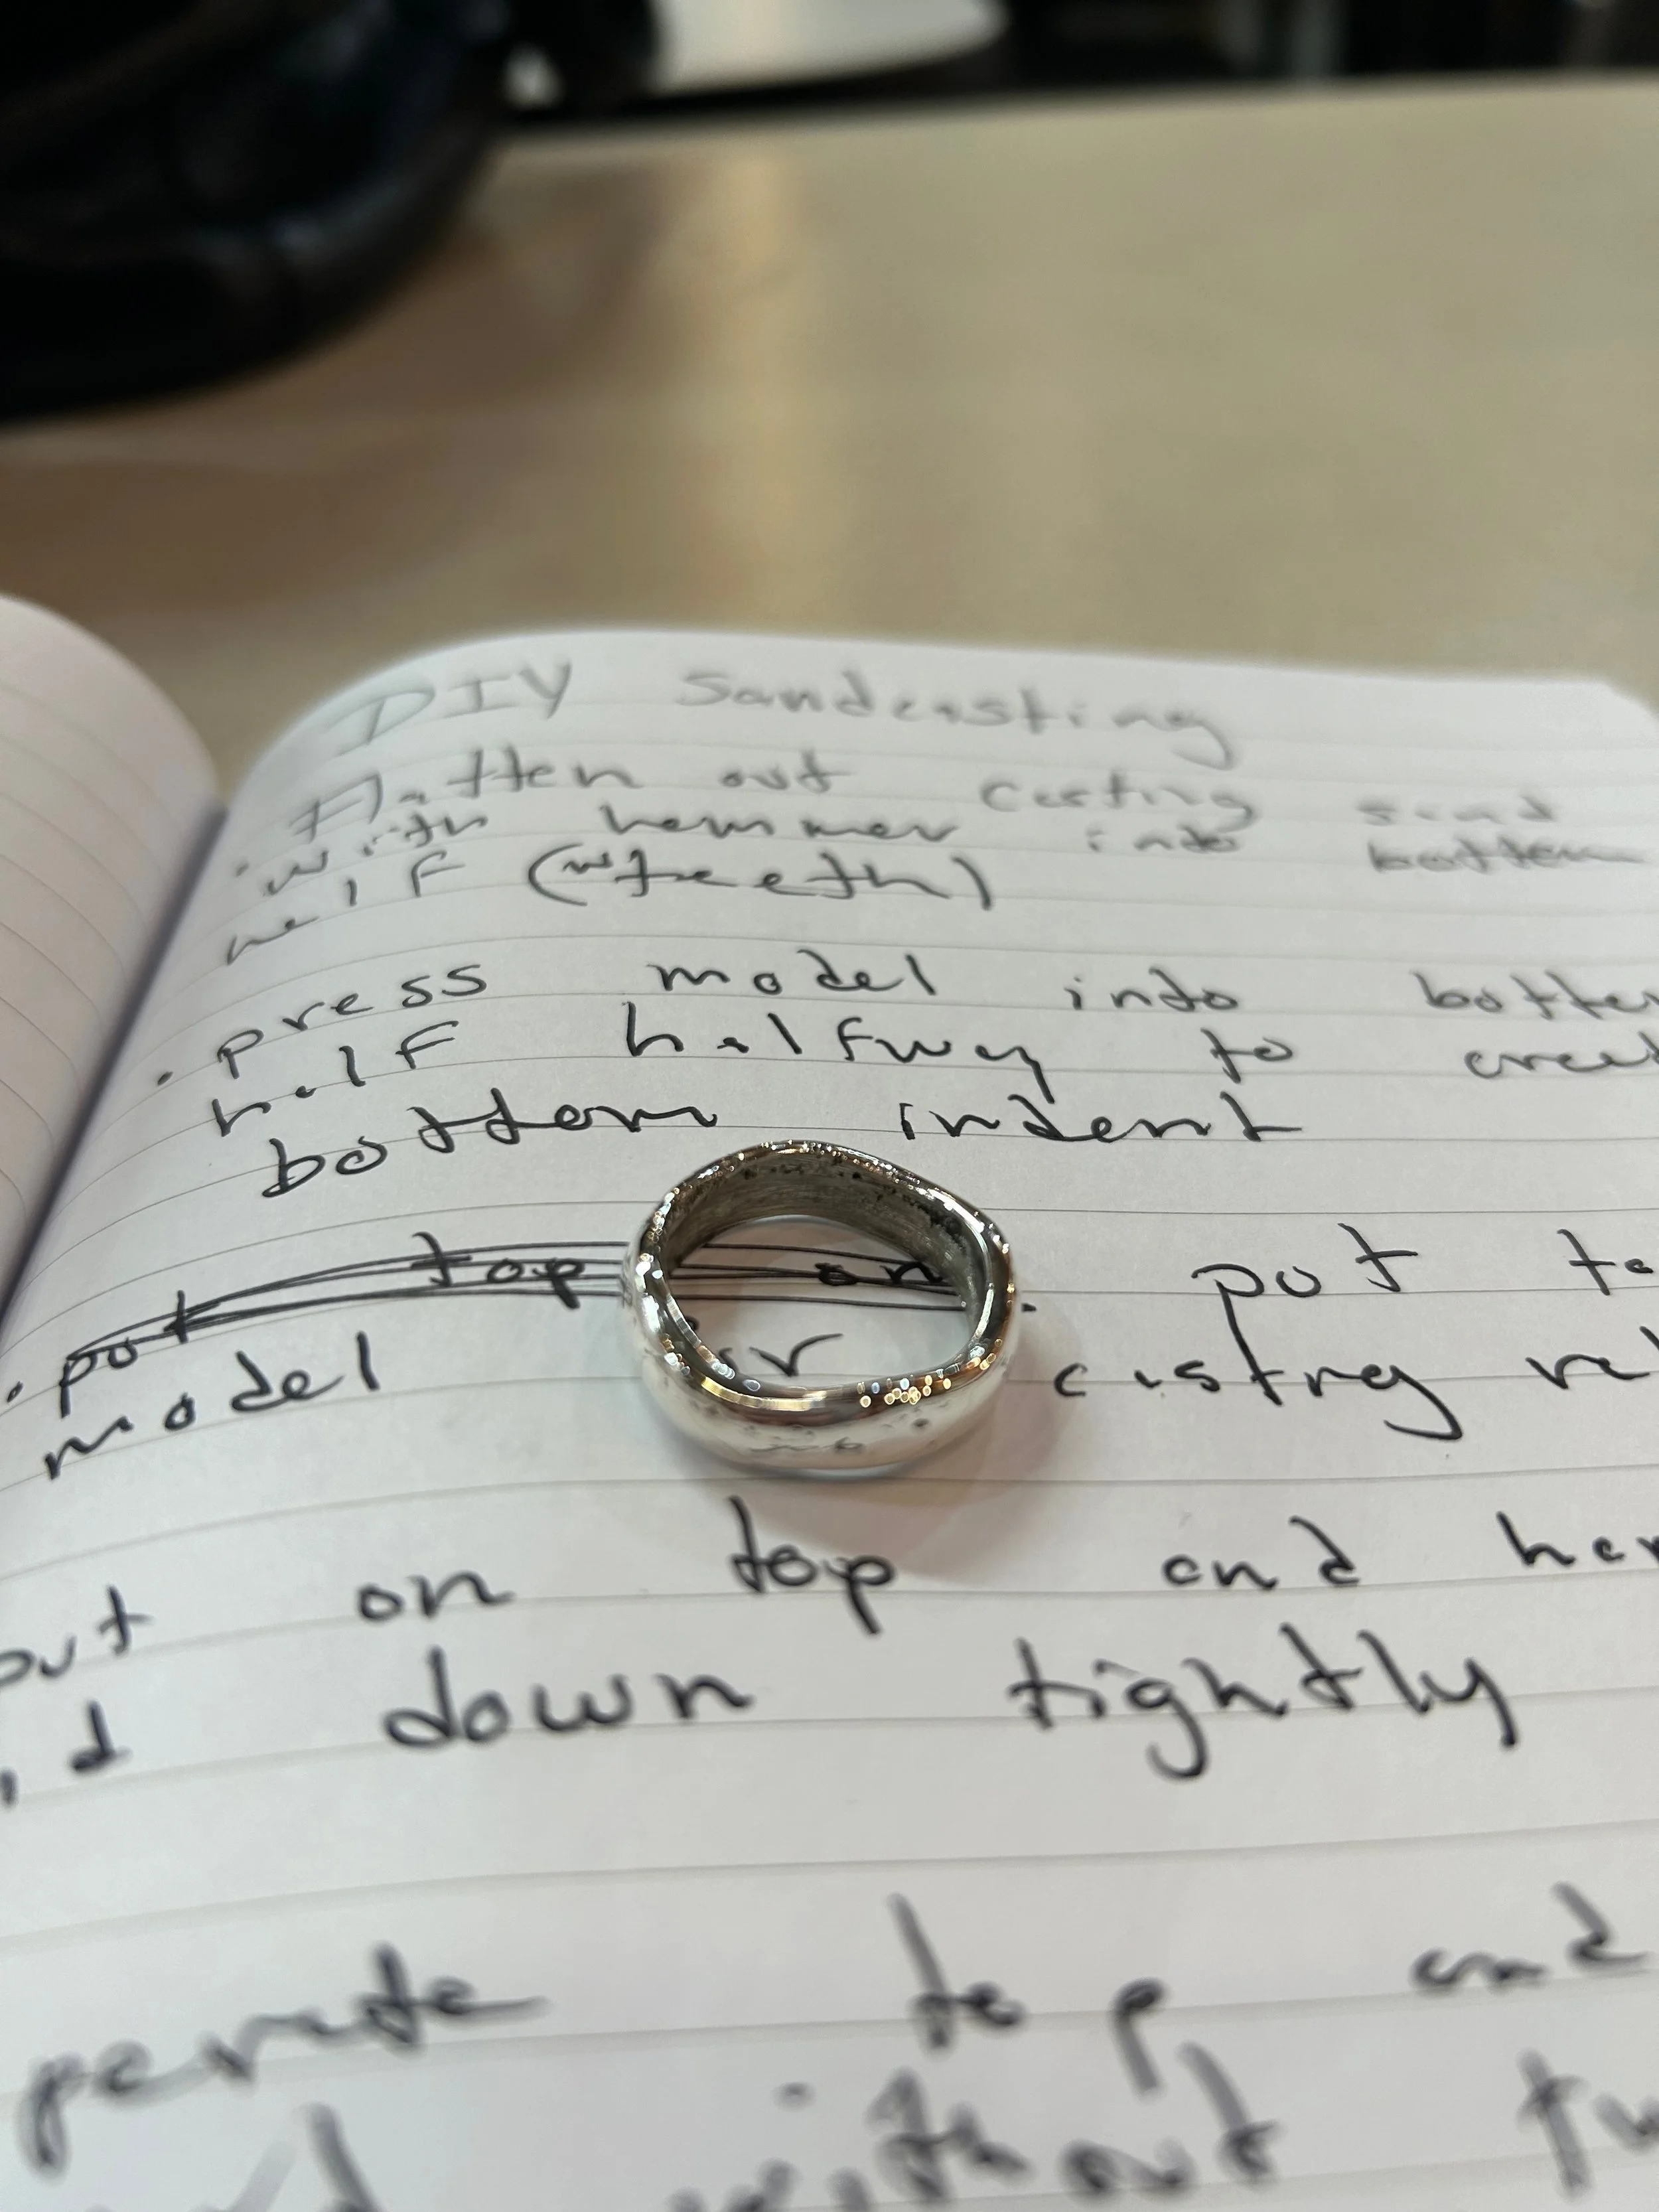 DIY Sandcasting
. Flatten out casting sand
with hammer into bottom
half (w teeth)
. press model into
half halfway to
bottom indent
. put top on . put
model casting
put on top and
down tightly
top and
without